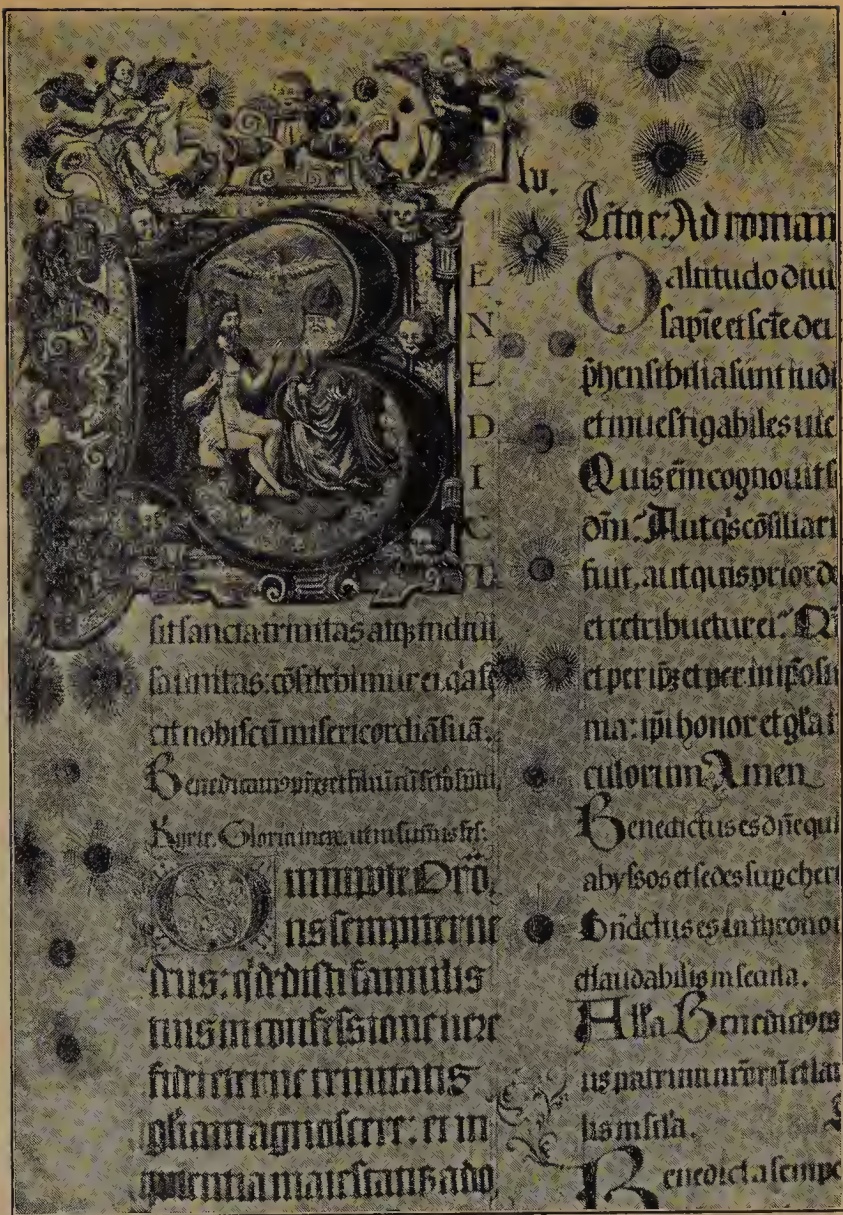 B
E
N
E
D
I
C
T
sit sancta trinitas atqȝ indiui
sa unitas: cōfitebimur ei q̄a fe
cit nobiscū misericordiā suā.
Benedicamꝰ pr̄ez et filiū cū sc̄tō spiritu
Kyrie. Gloria in exc. ut in
Omnipotēs Oro.
ns sempiterne
deus: q̄ dedisti famulis
tuis in confessione uere
fidei eterne trinitatis
gl̄iam agnoscere: et in
potentia maiestatis ado
lv.
Lctio: Ad roman
O altitudo diui
sapīe et sctē dei
p̄hensibilia sunt iudi
et inuestigabiles uie
Quis eīm cognouit se
dn̄i: Aut qͥs cōsiliari
fuit, aut quis prior de
et retribuetur ei: Qm̄
et per ip̄z et per in ip̄o su
nia: ip̄i honor et gl̄a i
culorum Amen
Benedictus es dn̄e qui
abyssos et sedes sup cheru
Bn̄dctus es in throno
et laudabilis in secula.
Alla Benedictus es
us patrum nr̄orū et lau
lis in scl̄a.
Benedicta semper